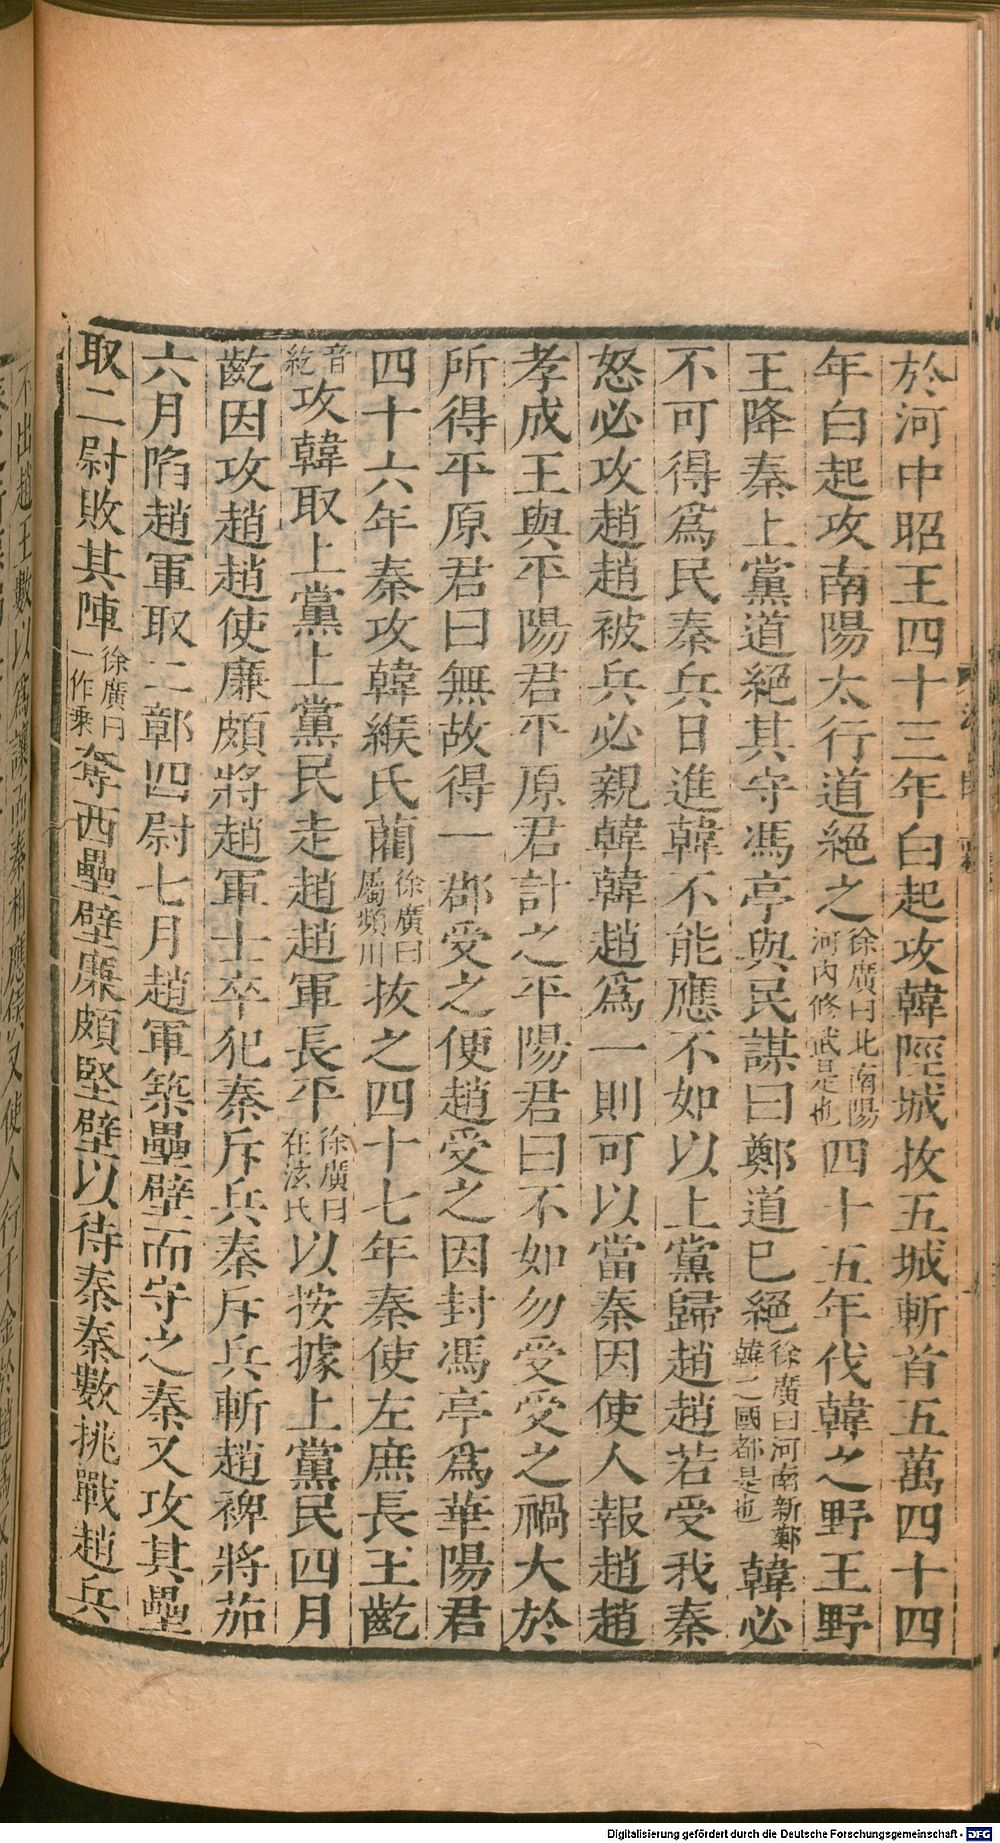 於河中昭王四十三年白起攻韓陘城拔五城斬首五萬四十四
年白起攻南陽太行道絕之徐廣曰北南陽河內修武是也四十五年伐韓之野王野
王降秦上黨道絕其守馮亭與民謀曰鄭道已絕徐廣曰河南新鄭韓之國都是也韓必
不可得爲民秦兵日進韓不能應不如以上黨歸趙趙若受我秦
怒必攻趙趙被兵必親韓韓趙爲一則可以當秦因使人報趙趙
孝成王與平陽君平原君計之平陽君曰不如勿受受之禍大於
所得平原君曰無故得一郡受之便趙受之因封馮亭爲華陽君
四十六年秦攻韓緱氏藺徐廣曰屬頻川拔之四十七年秦使左庶長王齕
音紇攻韓取上黨上黨民走趙趙軍長平徐廣曰在泫氏以按據上黨民四月
齕因攻趙趙使廉頗將趙軍士卒犯秦斥兵秦斥兵斬趙裨將茄
六月陷趙軍取二鄣四尉七月趙軍築壘壁而守之秦又攻其壘
取二尉敗其陣徐廣曰一作乘奪西壘壁廉頗堅壁以待秦秦數挑戰趙兵
不出趙王數以爲讓而秦相應侯又使人行千金於趙爲反間曰
Digitalisierung gefördert durch die Deutsche Forschungsgemeinschaft - DFG